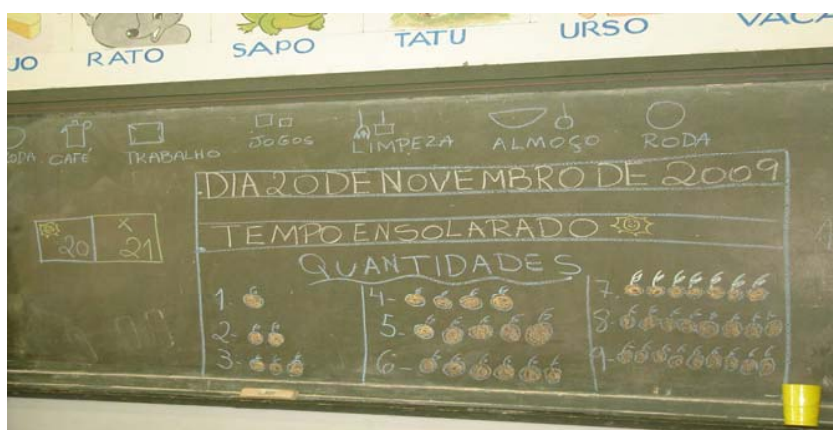 JO RATO SAPO TATU URSO VACA
RODA CAFÉ TRABALHO JOGOS LIMPEZA ALMOÇO RODA
DIA 20 DE NOVEMBRO DE 2009
20 X 21
TEMPO ENSOLARADO
QUANTIDADES
1- 4- 7-
2- 5- 8-
3- 6- 9-